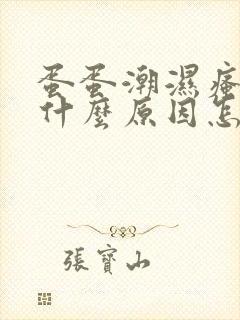 蛋蛋潮濕瘙
什麼原因怎
張寶山